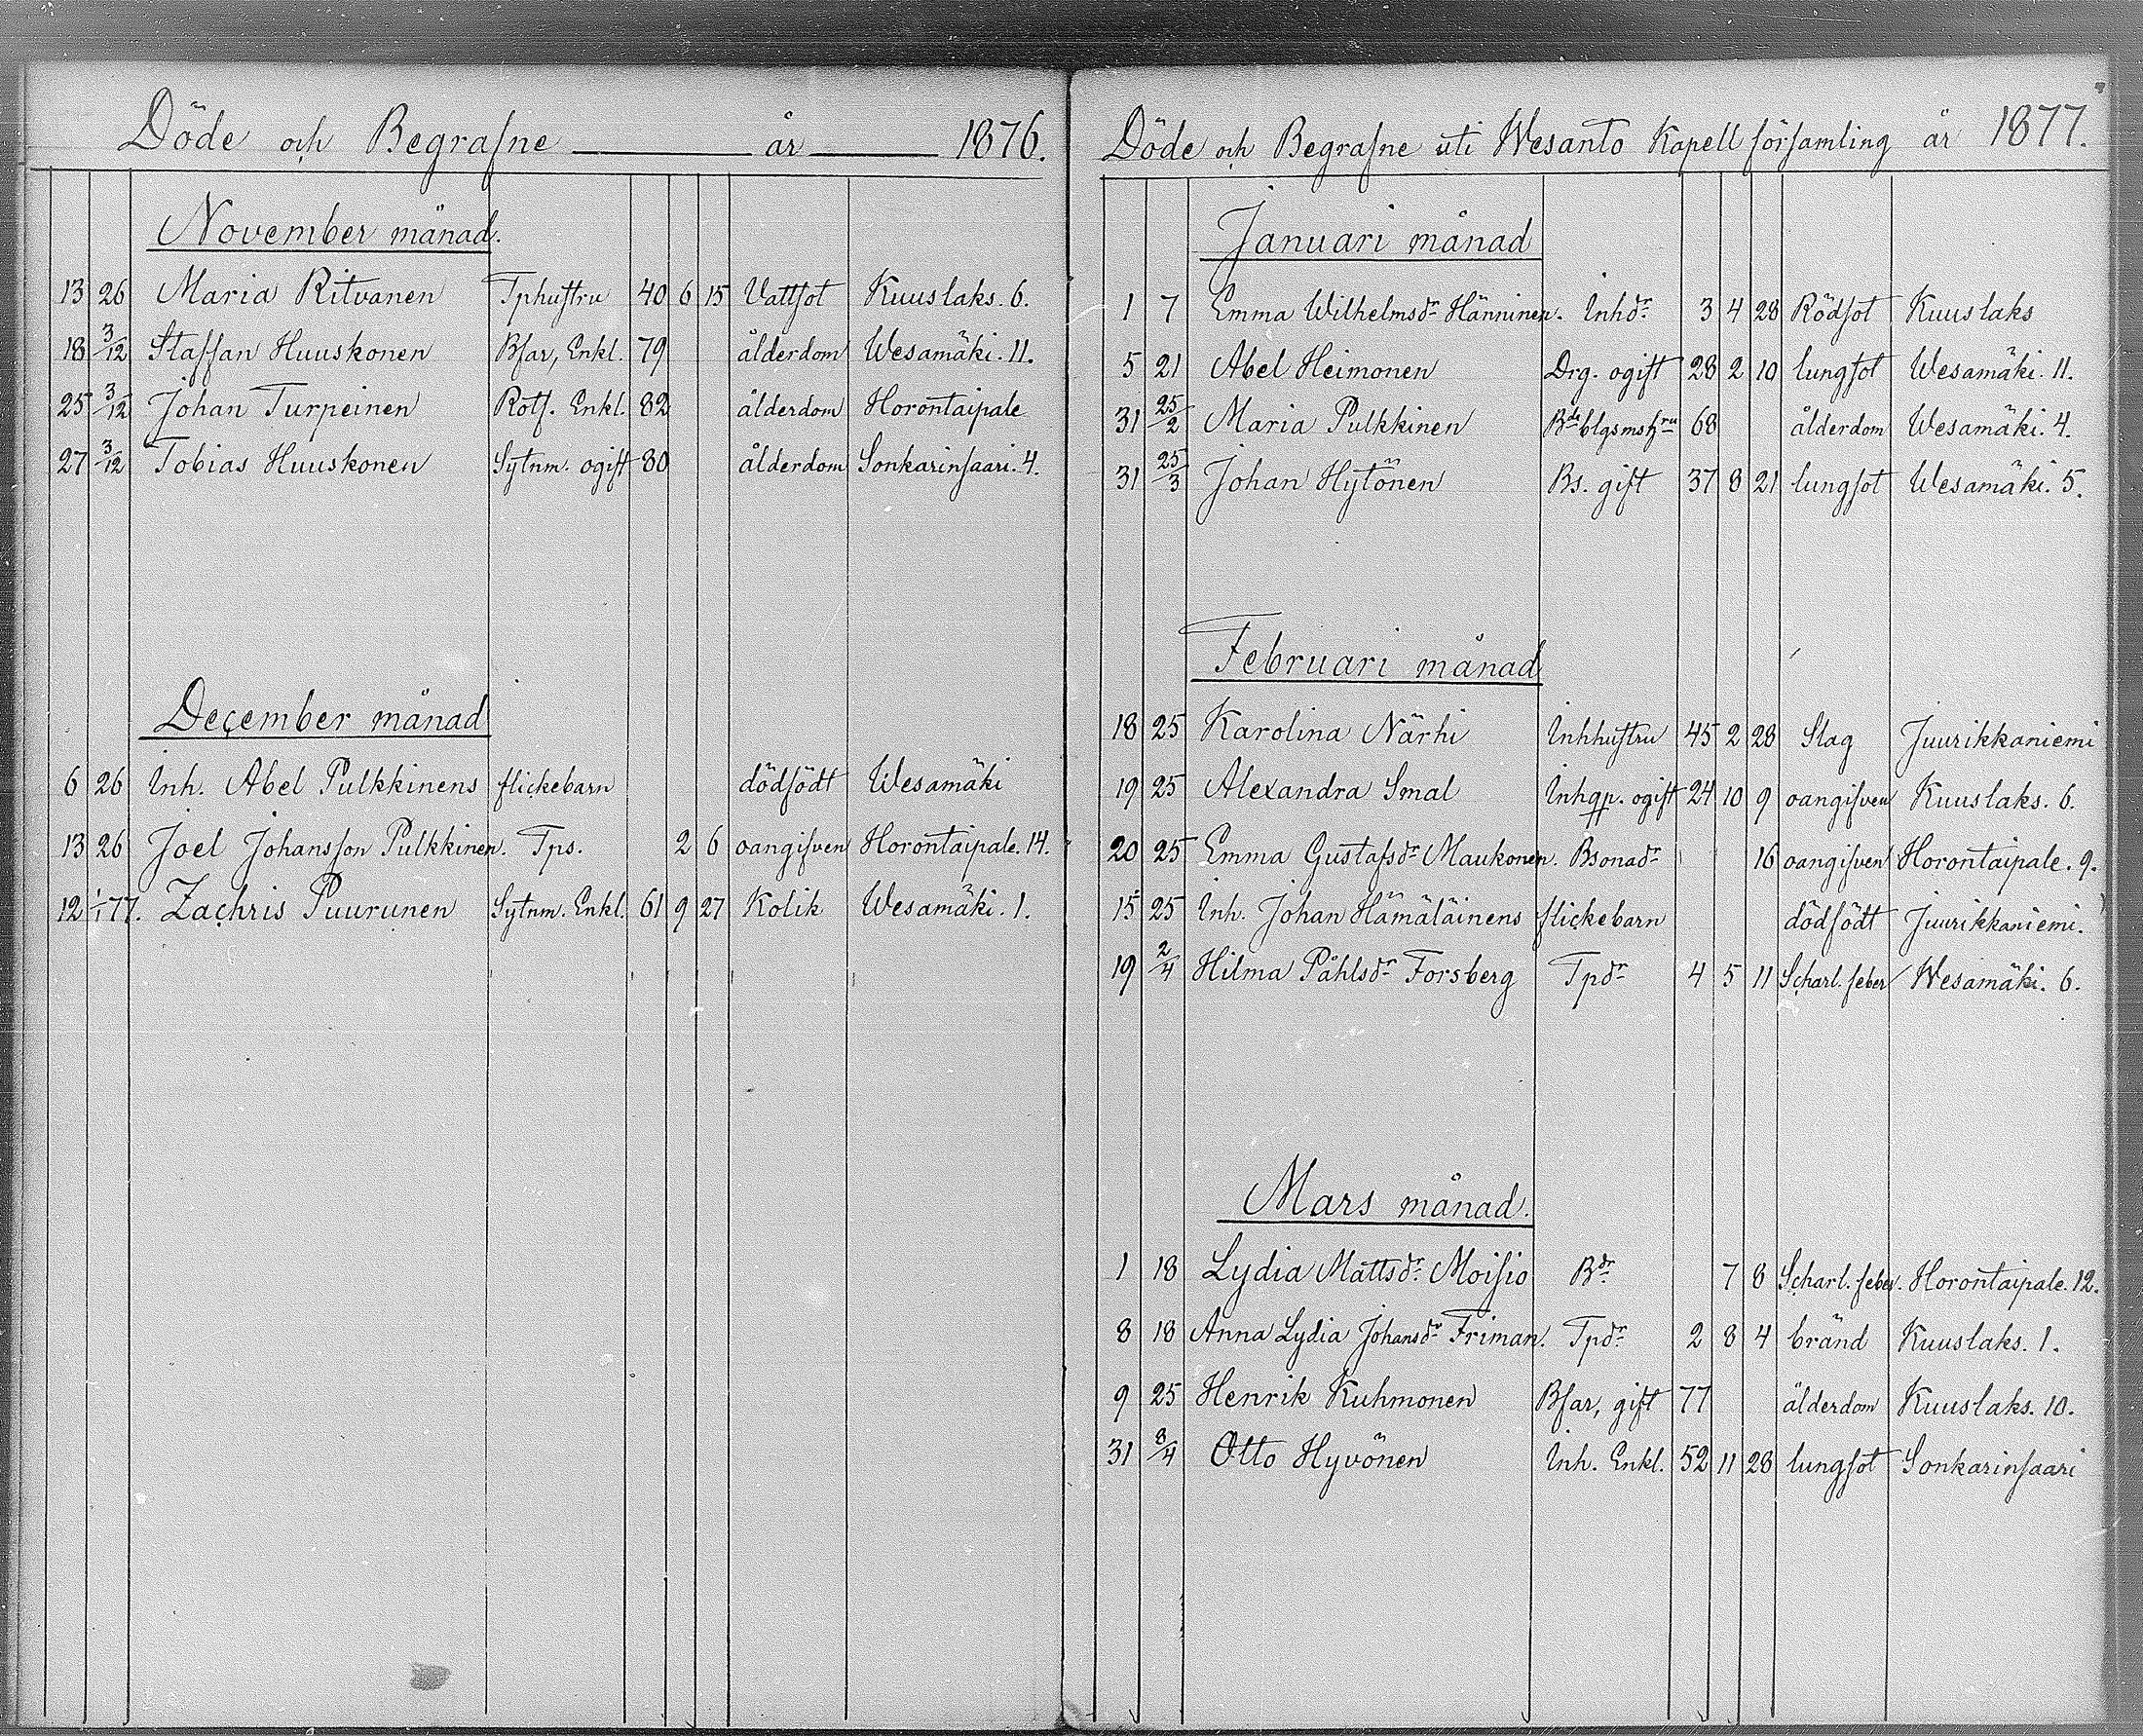 Döde och Begrafne ——— år ——— 1876.
November månad.
13 26 Maria Ritvanen Tphustru 40 6 15 Vattsot Kuuslaks. 6.
18 3/12 Staffan Huuskonen Bfar, Enkl. 79 ålderdom Wesamäki. 11.
25 3/12 Johan Turpeinen Rotf. Enkl. 82 ålderdom Horontaipale
27 3/12 Tobias Huuskonen Sytnm. ogift 80 ålderdom Sonkarinsaari. 4.
December månad
6 26 Inh. Abel Pulkkinens flickebarn dödfödt Wesamäki
13 26 Joel Johansson Pulkkinen. Tps. 2 6 oangifven Horontaipale. 14.
12 1/1 77. Zachris Puurunen Sytnm. Enkl. 61 9 27 Kolik Wesamäki. 1.
Döde och Begrafne uti Wesanto Kapellförsamling år 1877.
Januari månad
1 7 Emma Wilhelmsdr Hänninen. Inhdr 3 4 28 Rödsot Kuuslaks
5 21 Abel Heimonen Drg. ogift 28 2 10 lungsot Wesamäki. 11.
31 25/2 Maria Pulkkinen 68 ålderdom Wesamäki. 4.
31 25/3 Johan Hytönen Bs. gift 37 8 21 lungsot Wesamäki. 5.
Februari månad
18 25 Karolina Närhi Inhhustru 45 2 28 Slag Juurikkaniemi
19 25 Alexandra Smal Inhqp. ogift 24 10 9 oangifven Kuuslaks. 6.
20 25 Emma Gustafsdr Maukonen. Bsonadr 16 oangifven Horontaipale. 9.
15 25 Inh. Johan Hämäläinens flickebarn dödfödt Juurikkaniemi.
19 2/4 Hilma Påhlsdr Forsberg Tpdr 4 5 11 Scharl. feber Wesamäki. 6.
Mars månad.
1 18 Lydia Mattsdr Moisio Bdr 7 8 Scharl. feber. Horontaipale. 12.
8 18 Anna Lydia Johansdr Friman. Tpdr 2 8 4 bränd Kuuslaks. 1.
9 25 Henrik Kuhmonen Bfar, gift 77 ålderdom Kuuslaks. 10.
31 8/4 Otto Hyvönen Inh. Enkl. 52 11 28 lungsot Sonkarinsaari